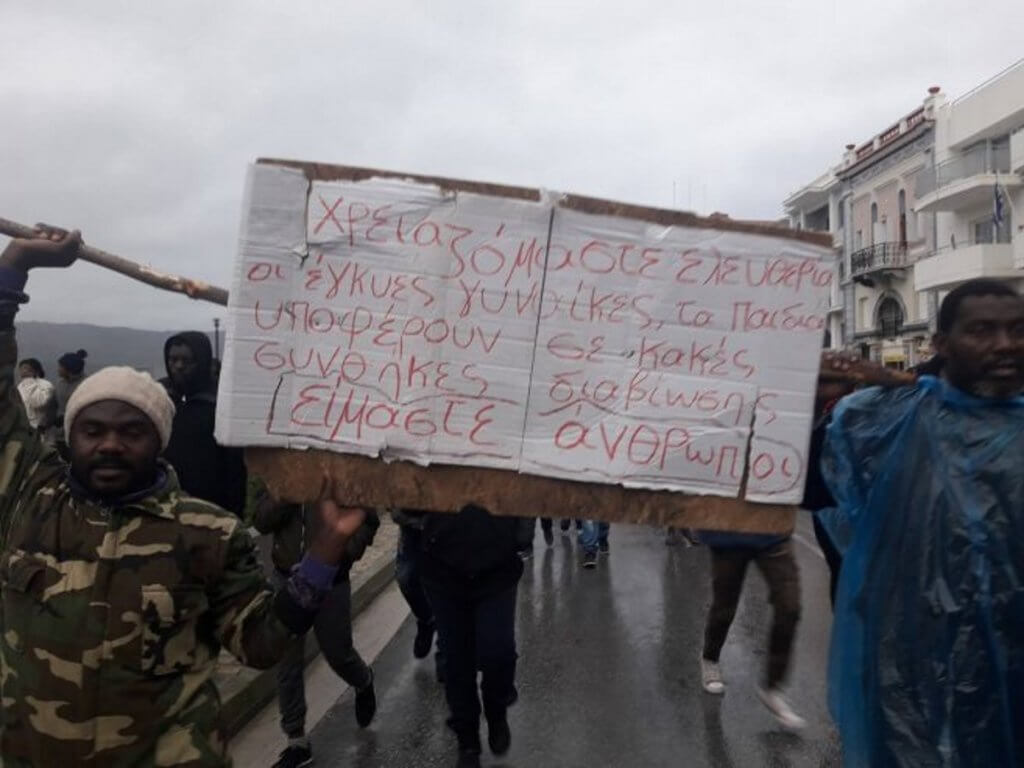 χρειαζόμαστε ελευθερία
οι έγκυες γυναίκες, τα παιδια
υποφέρουν σε κακές
συνθήκες διαβίωσης
είμαστε άνθρωποι